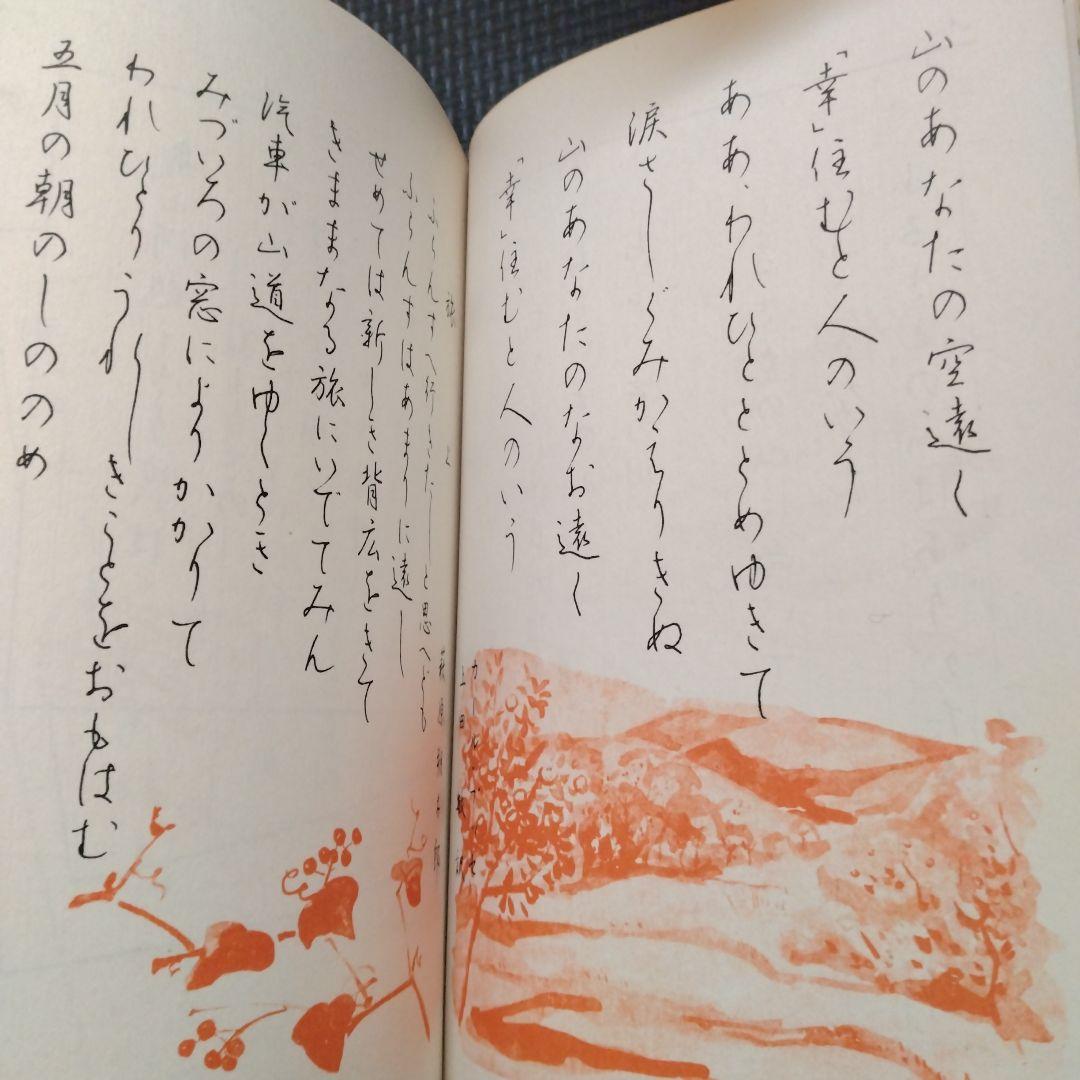 山のあなたの空遠く
「幸」住むと人のいう
ああ、われひとととめゆきて
涙さしぐみかえりきぬ
山のあなたのなお遠く
「幸」住むと人のいう
上田敏訳
旅上
萩原朔太郎
ふらんすへ行きたしと思へども
ふらんすはあまりに遠し
せめては新しき背広をきて
きままなる旅にいでてみん
汽車が山道をゆくとき
みづいろの窓によりかかりて
われひとりうれしきことをおもはむ
五月の朝のしののめ